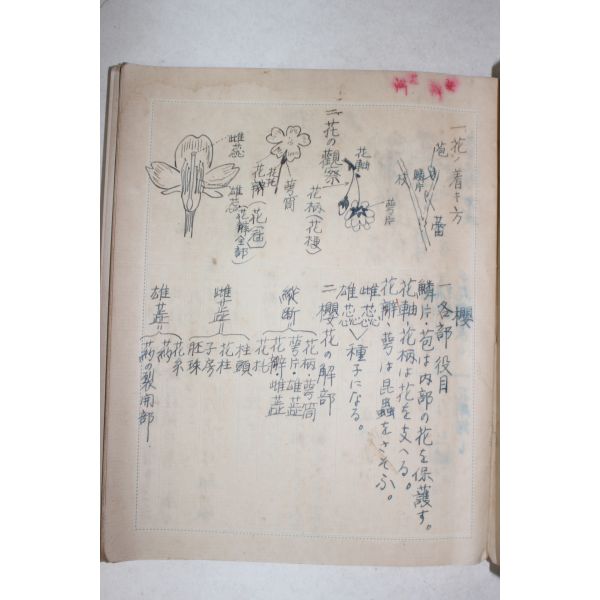 一花ノ着キ方
苞
鱗片
枝
蕾
二花の観察
花軸
萼片
花柄(花梗)
萼筒
花瓣
花(冠)
花瓣全部
雌蕊
雄蕊
櫻
一各部役目
鱗片・苞は内部の花を保護す。
花軸・花柄は花を支へる。
花瓣、萼は昆蟲をさそふ。
雌蕊
雄蕊
種子になる。
二櫻花の解部
縦断
花柄・萼筒
萼片・雄蕋
花瓣・雌蕋
花托
雌蕋=
柱頭
花柱
子房
胚珠
雄蕋=
花糸
葯
葯の裂開部